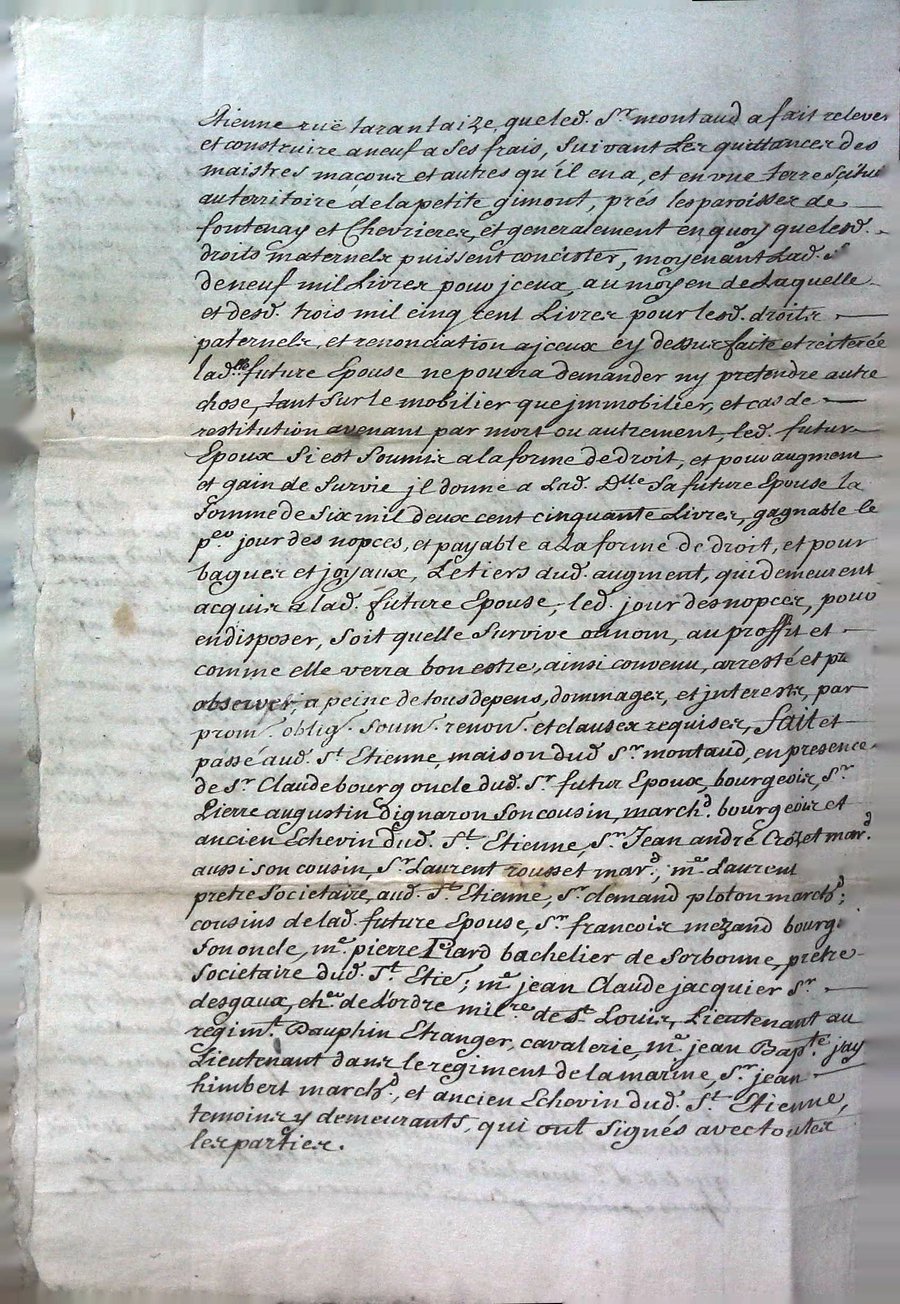 Etienne ruë tarantaize, queled. Sr. montaud a fait relever
et construire a neuf a ses frais, suivant Les quittances des
maistres maçons et autres qu'il en a, et en une terre Scitué
au territoire de la petite gimont, prés les paroisses de
fontenay et Chevrieres, et generalement en quoy que lesd.
droits maternels puissent concister, moyenant Lad. Se
de neuf mil Livres pour jceux, au moyen de Laquelle
et desd. trois mil cinq cent Livres pour lesd. droits
paternels, et renonciation a jceux cy dessus faite et reiterée
lad. future Epouse ne pourra demander ny pretendre autre
chose, tant sur le mobilier que jmmobilier, et cas de
restitution avenant par mort ou autrement, led. futur
Epoux s'i est soumis a la forme de droit, et pour augment
et gain de survie jl donne a Lad. Dlle sa future Epouse la
somme de six mil deux cent cinquante Livres, gagnable le
per jour des nopces, et payable a La forme de droit, et pour
bagues et joyaux, Le tiers dud. augment, qui demeurent
acquis a lad. future Epouse, led. jour des nopces, pour
en disposer, soit quelle survive ou non, au proffit et
comme elle verra bon estre, ainsi convenu, arresté et pr
observer, a peine de tous depens, dommages, et jnterests, par
prom. oblig. soum. renon. et clauses requises, fait et
passé aud. St. Etienne, maison dud. Sr. montaud, en presence
de Sr. Claude bourg oncle dud. Sr. futur Epoux, bourgeois, Sr.
Pierre augustin dignaron son cousin, marchd. bourgeois et
ancien Echevin dud. St. Etienne, Sr. Jean andré Crozet mard.
aussi son cousin, Sr. Laurent rousset mard., me Laurent
pretre societaire, aud. St. Etienne, Sr. clemand ploton marchd;
cousins de lad. future Epouse, Sr. francois mezand bourg.
son oncle, me. pierre Piard bachelier de sorbonne, pretre
societaire dud. St. Etie; me. jean Claude jacquier Sr.
desgaux, cher. de L'ordre milre. de St. Louis, Lieutenant au
regimt. Dauphin Etranger, cavalerie, me. jean Bapte. jay
Lieutenant dans le regiment de la marine, Sr. jean
himbert marchd., et ancien Echevin dud. St. Etienne,
temoins y demeurants, qui ont signés avec toutes
les parties.